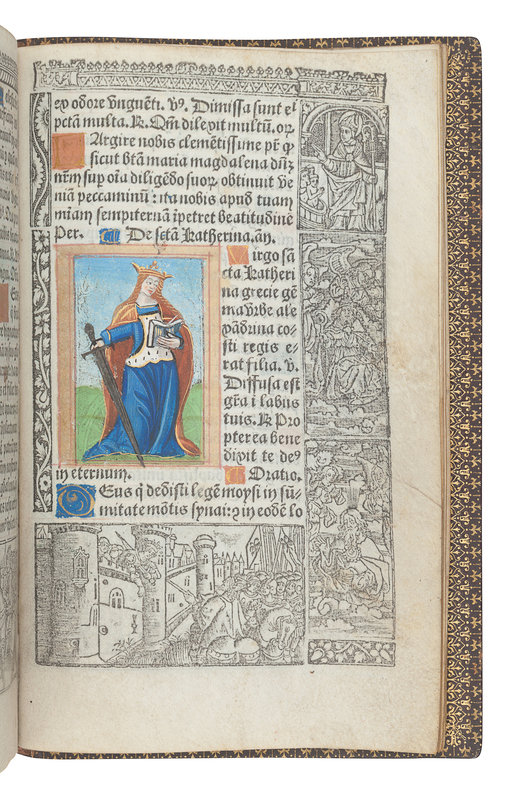 ex odore vnguēti. ꝟ. Dimissa sunt ei
pctām multa. ℟. Qm̄ dilexit multū. or̄.
Largire nobis clemētissime pr̄ ꝙ
sicut btā maria magdalena dn̄ꝫ
nr̄m sup oīa diligēdo suoꝝ obtinuit ve
niā peccaminū: ita nobis apud tuam
miam sempiternā īpetret beatitudinē
Per. De sctā Katherina. an̄.
Virgo sā
cta Katheri
na grecie gē
ma vrbe ale
xādrina co
sti regis e⸗
rat filia. ꝟ.
Diffusa est
gr̄a ī labiis
tuis. ℟ Pro
pterea bene
dixit te deꝰ
in eternum. Oratio.
Deus q̇ dedisti legē moysi in sū⸗
mitate mōtis synai: ⁊ in eodē lo